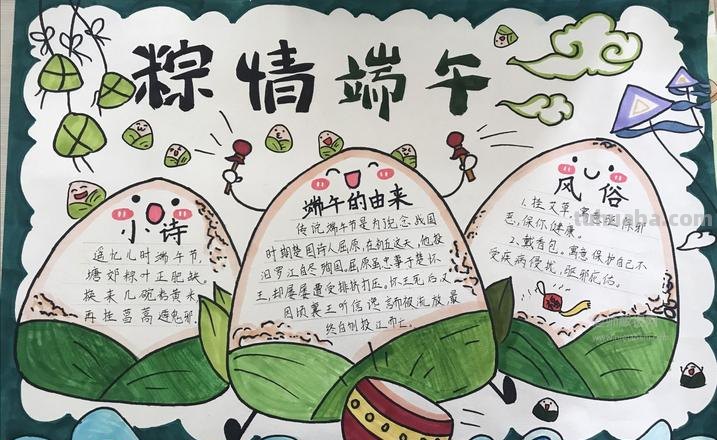 粽情端午
小诗
遥忆儿时端午节,
塘郊粽叶正肥缺。
换来几碗黄米,
再挂菖蒿避鬼邪.
端午的由来
传说端午节是为纪念战国
时期楚国诗人屈原,在初五这天,他投
汨罗江自尽殉国。屈原虽忠事于楚怀
王,却屡屡遭受排挤打压。怀王死后又
因顷襄王听信谗而被流放,最
终自刎投江而亡。
风俗
1.挂艾草,寓意驱除邪
恶,保你健康。
2.戴香包,寓意保护自己不
受疾病侵扰,驱邪庇佑。
tukuaba.com